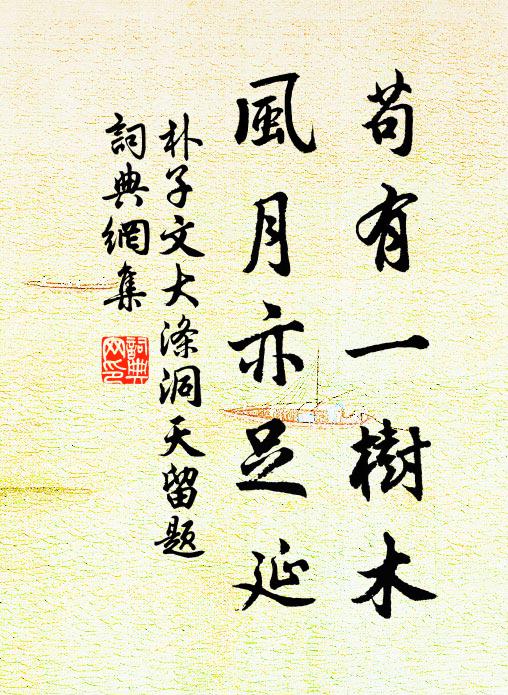 苟有一樹木
風月亦足延
朴子文大滌洞天留題
詞典網集
詞典网印